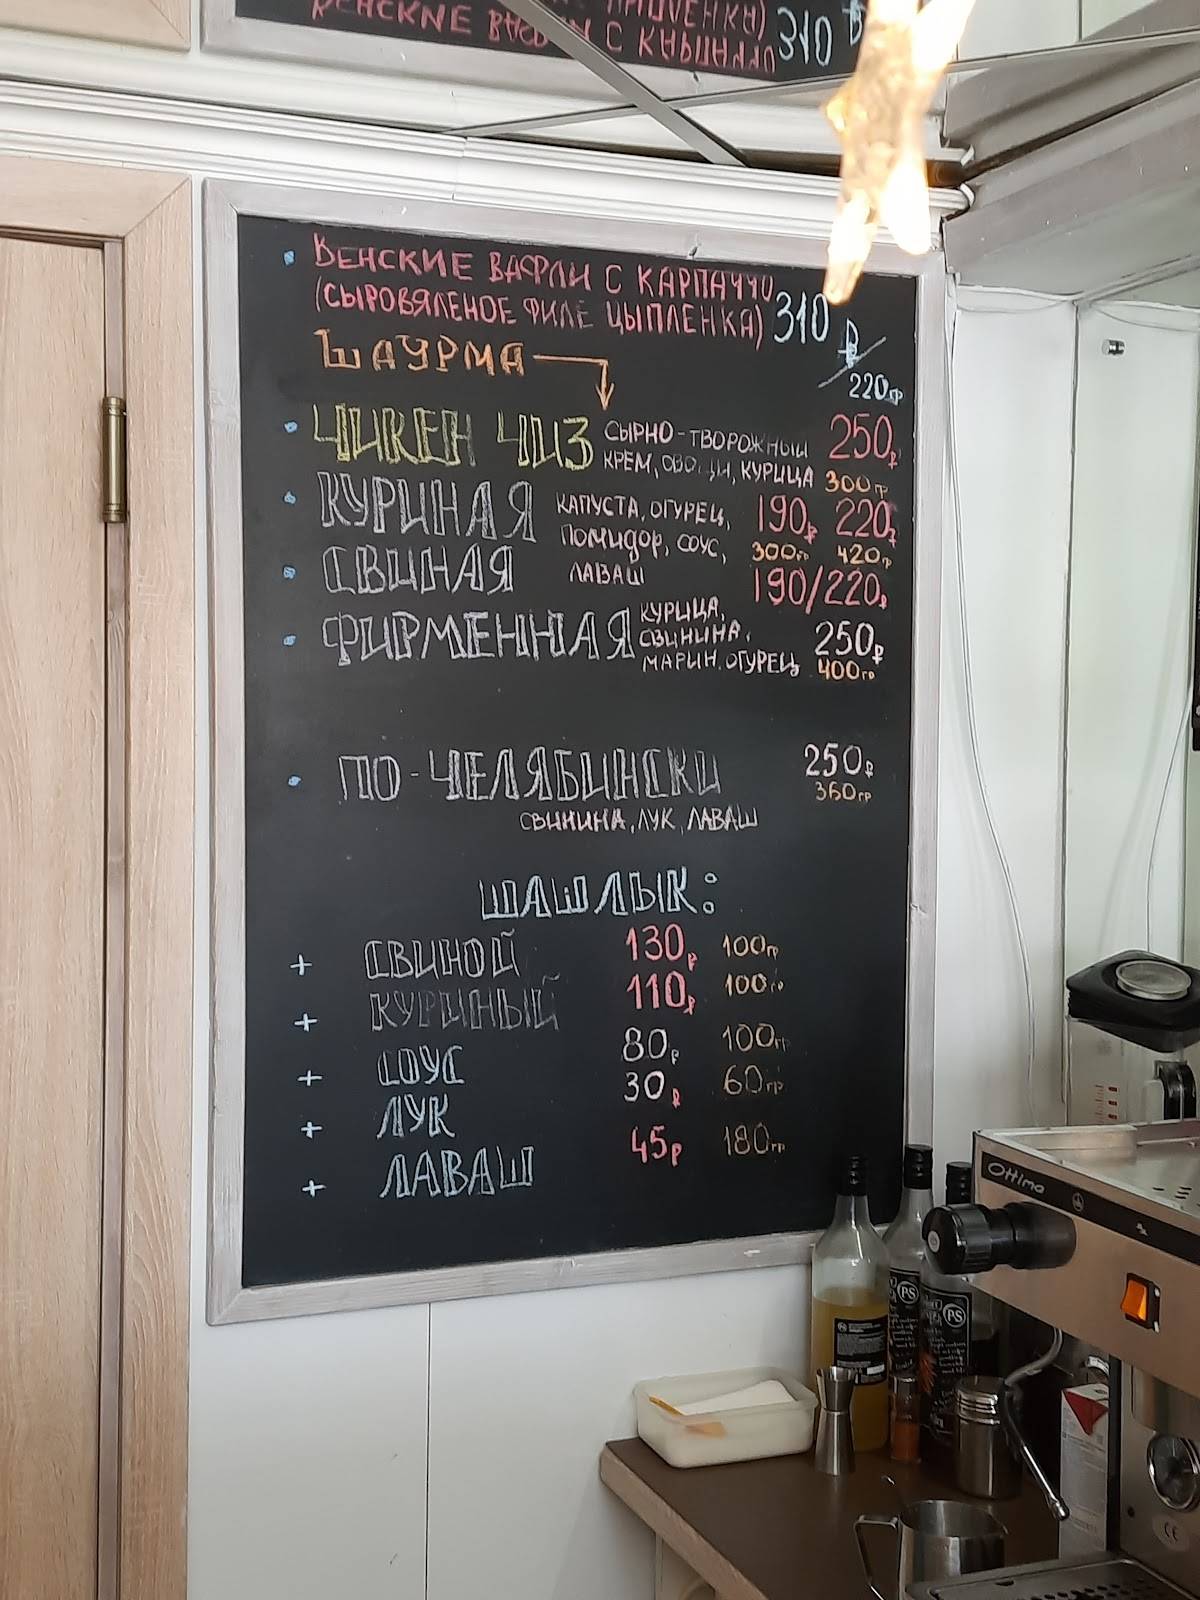 ВЕНСКИЕ ВАФЛИ С
310 ₽
• ВЕНСКИЕ ВАФЛИ С КАРПАЧЧО
(СЫРОВЯЛЕНОЕ ФИЛЕ ЦЫПЛЕНКА) 310 ₽
220гр
ШАУРМА
• ЧИКЕН ЧИЗ СЫРНО-ТВОРОЖНЫЙ 250₽
КРЕМ, ОВОЩИ, КУРИЦА 300гр
• КУРИНАЯ КАПУСТА, ОГУРЕЦ, 190₽ 220₽
ПОМИДОР, СОУС, 300гр 420гр
• СВИНАЯ ЛАВАШ 190/220₽
• ФИРМЕННАЯ КУРИЦА,
СВИНИНА, 250₽
МАРИН. ОГУРЕЦ 400гр
• ПО-ЧЕЛЯБИНСКИ 250₽
360гр
СВИНИНА, ЛУК, ЛАВАШ
ШАШЛЫК:
+ СВИНОЙ 130₽ 100гр
+ КУРИНЫЙ 110₽ 100гр
+ СОУС 80₽ 100гр
+ ЛУК 30₽ 60гр
+ ЛАВАШ 45₽ 180гр
Ottima
PS
PS
CE